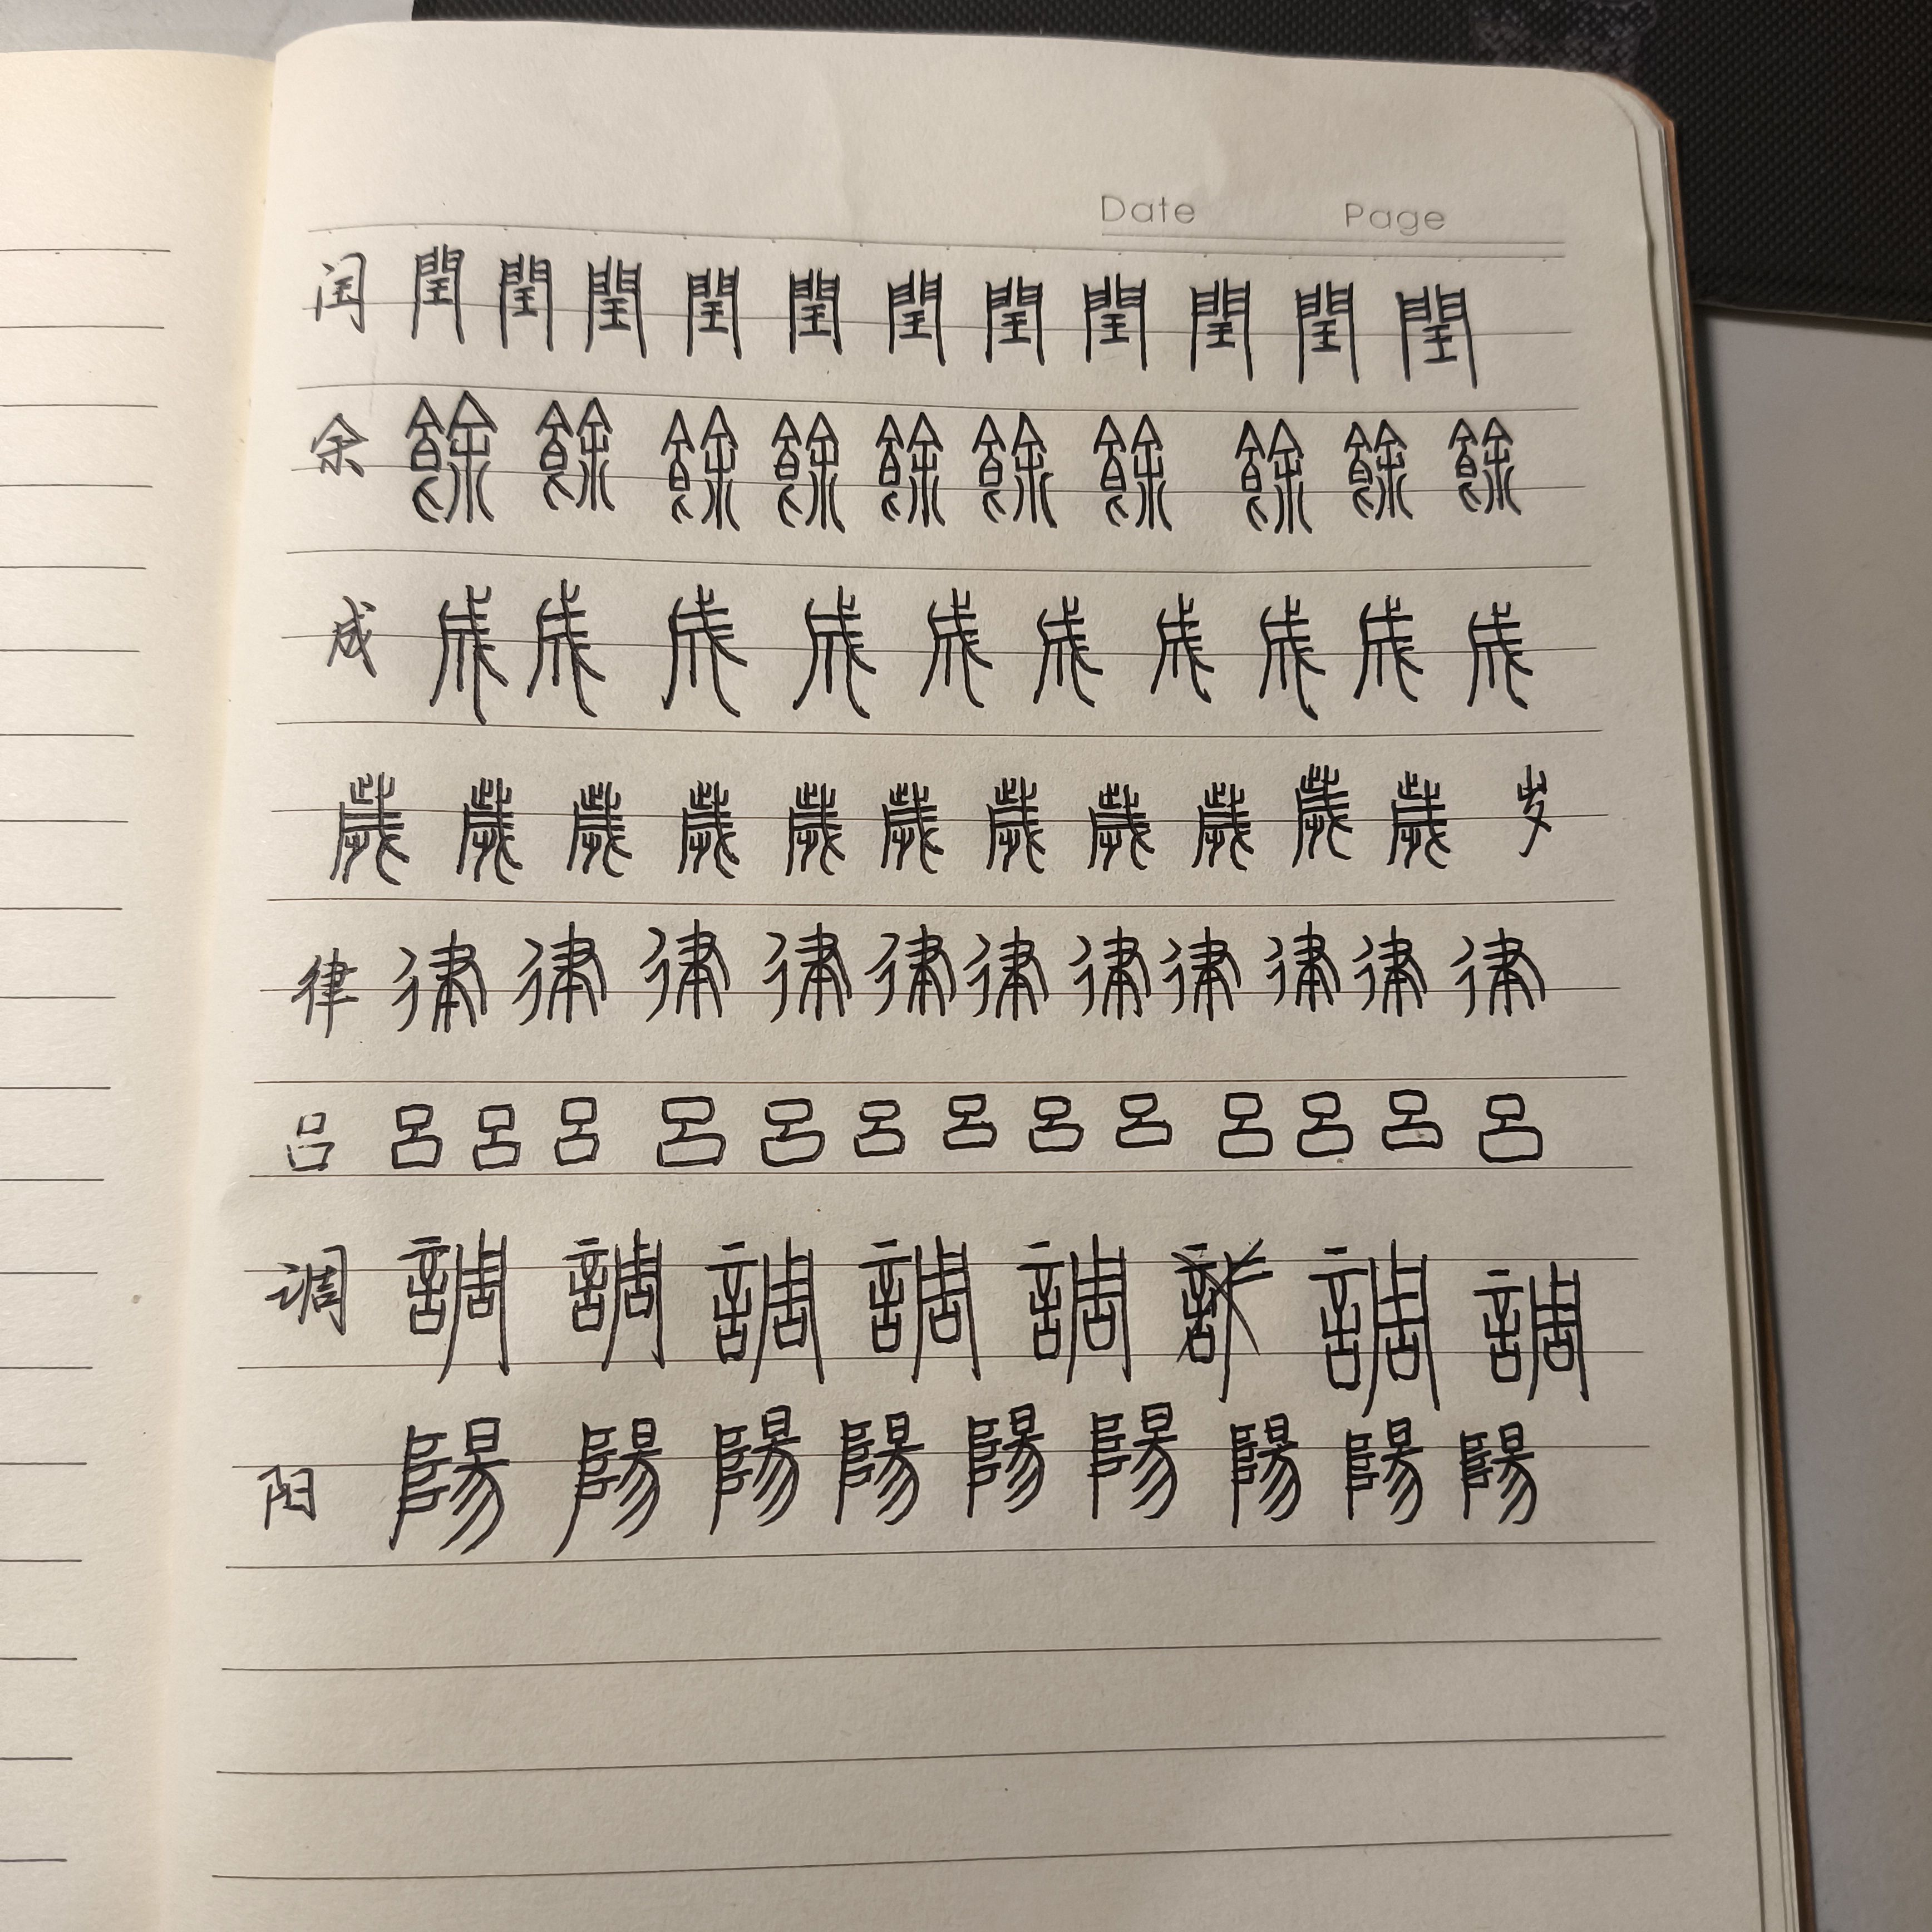 Date Page
闰 閏 閏 閏 閏 閏 閏 閏 閏 閏 閏 閏
余 餘 餘 餘 餘 餘 餘 餘 餘 餘 餘
成 成 成 成 成 成 成 成 成 成 成
歲 歲 歲 歲 歲 歲 歲 歲 歲 歲 歲 岁
律 律 律 律 律 律 律 律 律 律 律 律
吕 呂 呂 呂 呂 呂 呂 呂 呂 呂 呂 呂 呂 呂
调 調 調 調 調 調 調 調
阳 陽 陽 陽 陽 陽 陽 陽 陽 陽